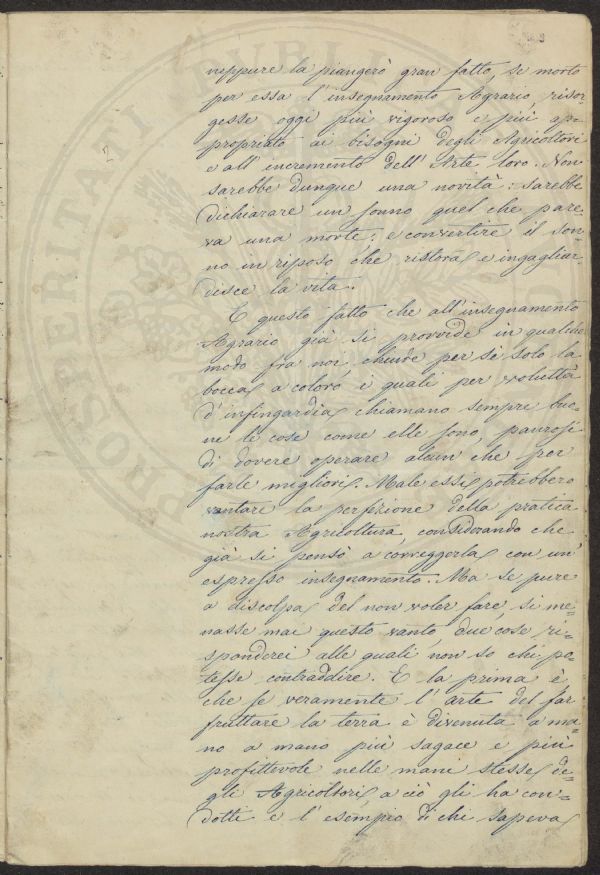 neppure la piangerò gran fatto, se morto
per essa l'insegnamento Agrario, risor-
gesse oggi più vigoroso e più ap-
propriato ai bisogni degli Agricoltori
e all'incremento dell'Arte loro. Non
sarebbe dunque una novità: sarebbe
dichiarare un sonno quel che pare-
va una morte: e convertire il son-
no in riposo che ristora e ingagliar-
disce la vita.
E questo fatto che all'insegnamento
Agrario già si provvide in qualche
modo fra noi, chiude per sè solo la
bocca a coloro i quali per voluttà
d'infingardia chiamano sempre buo-
ne le cose come elle sono, paurosi
di dovere operare alcun che per
farle migliori. Male essi potrebbero
vantare la perfezione della pratica
nostra Agricoltura, considerando che
già si pensò a correggerla con un'
espresso insegnamento. Ma se pure
a discolpa del non voler fare, si me-
nasse mai questo vanto, due cose ri-
sponderei alle quali non so chi po-
tesse contraddire. E la prima è
che se veramente l'arte del far
fruttare la terra è divenuta a ma-
no a mano più sagace e più
profittevole nelle mani stesse de-
gli Agricoltori, a ciò gli ha con-
dotti e l'esempio di chi sapeva
PROSPERITATI PUBLI